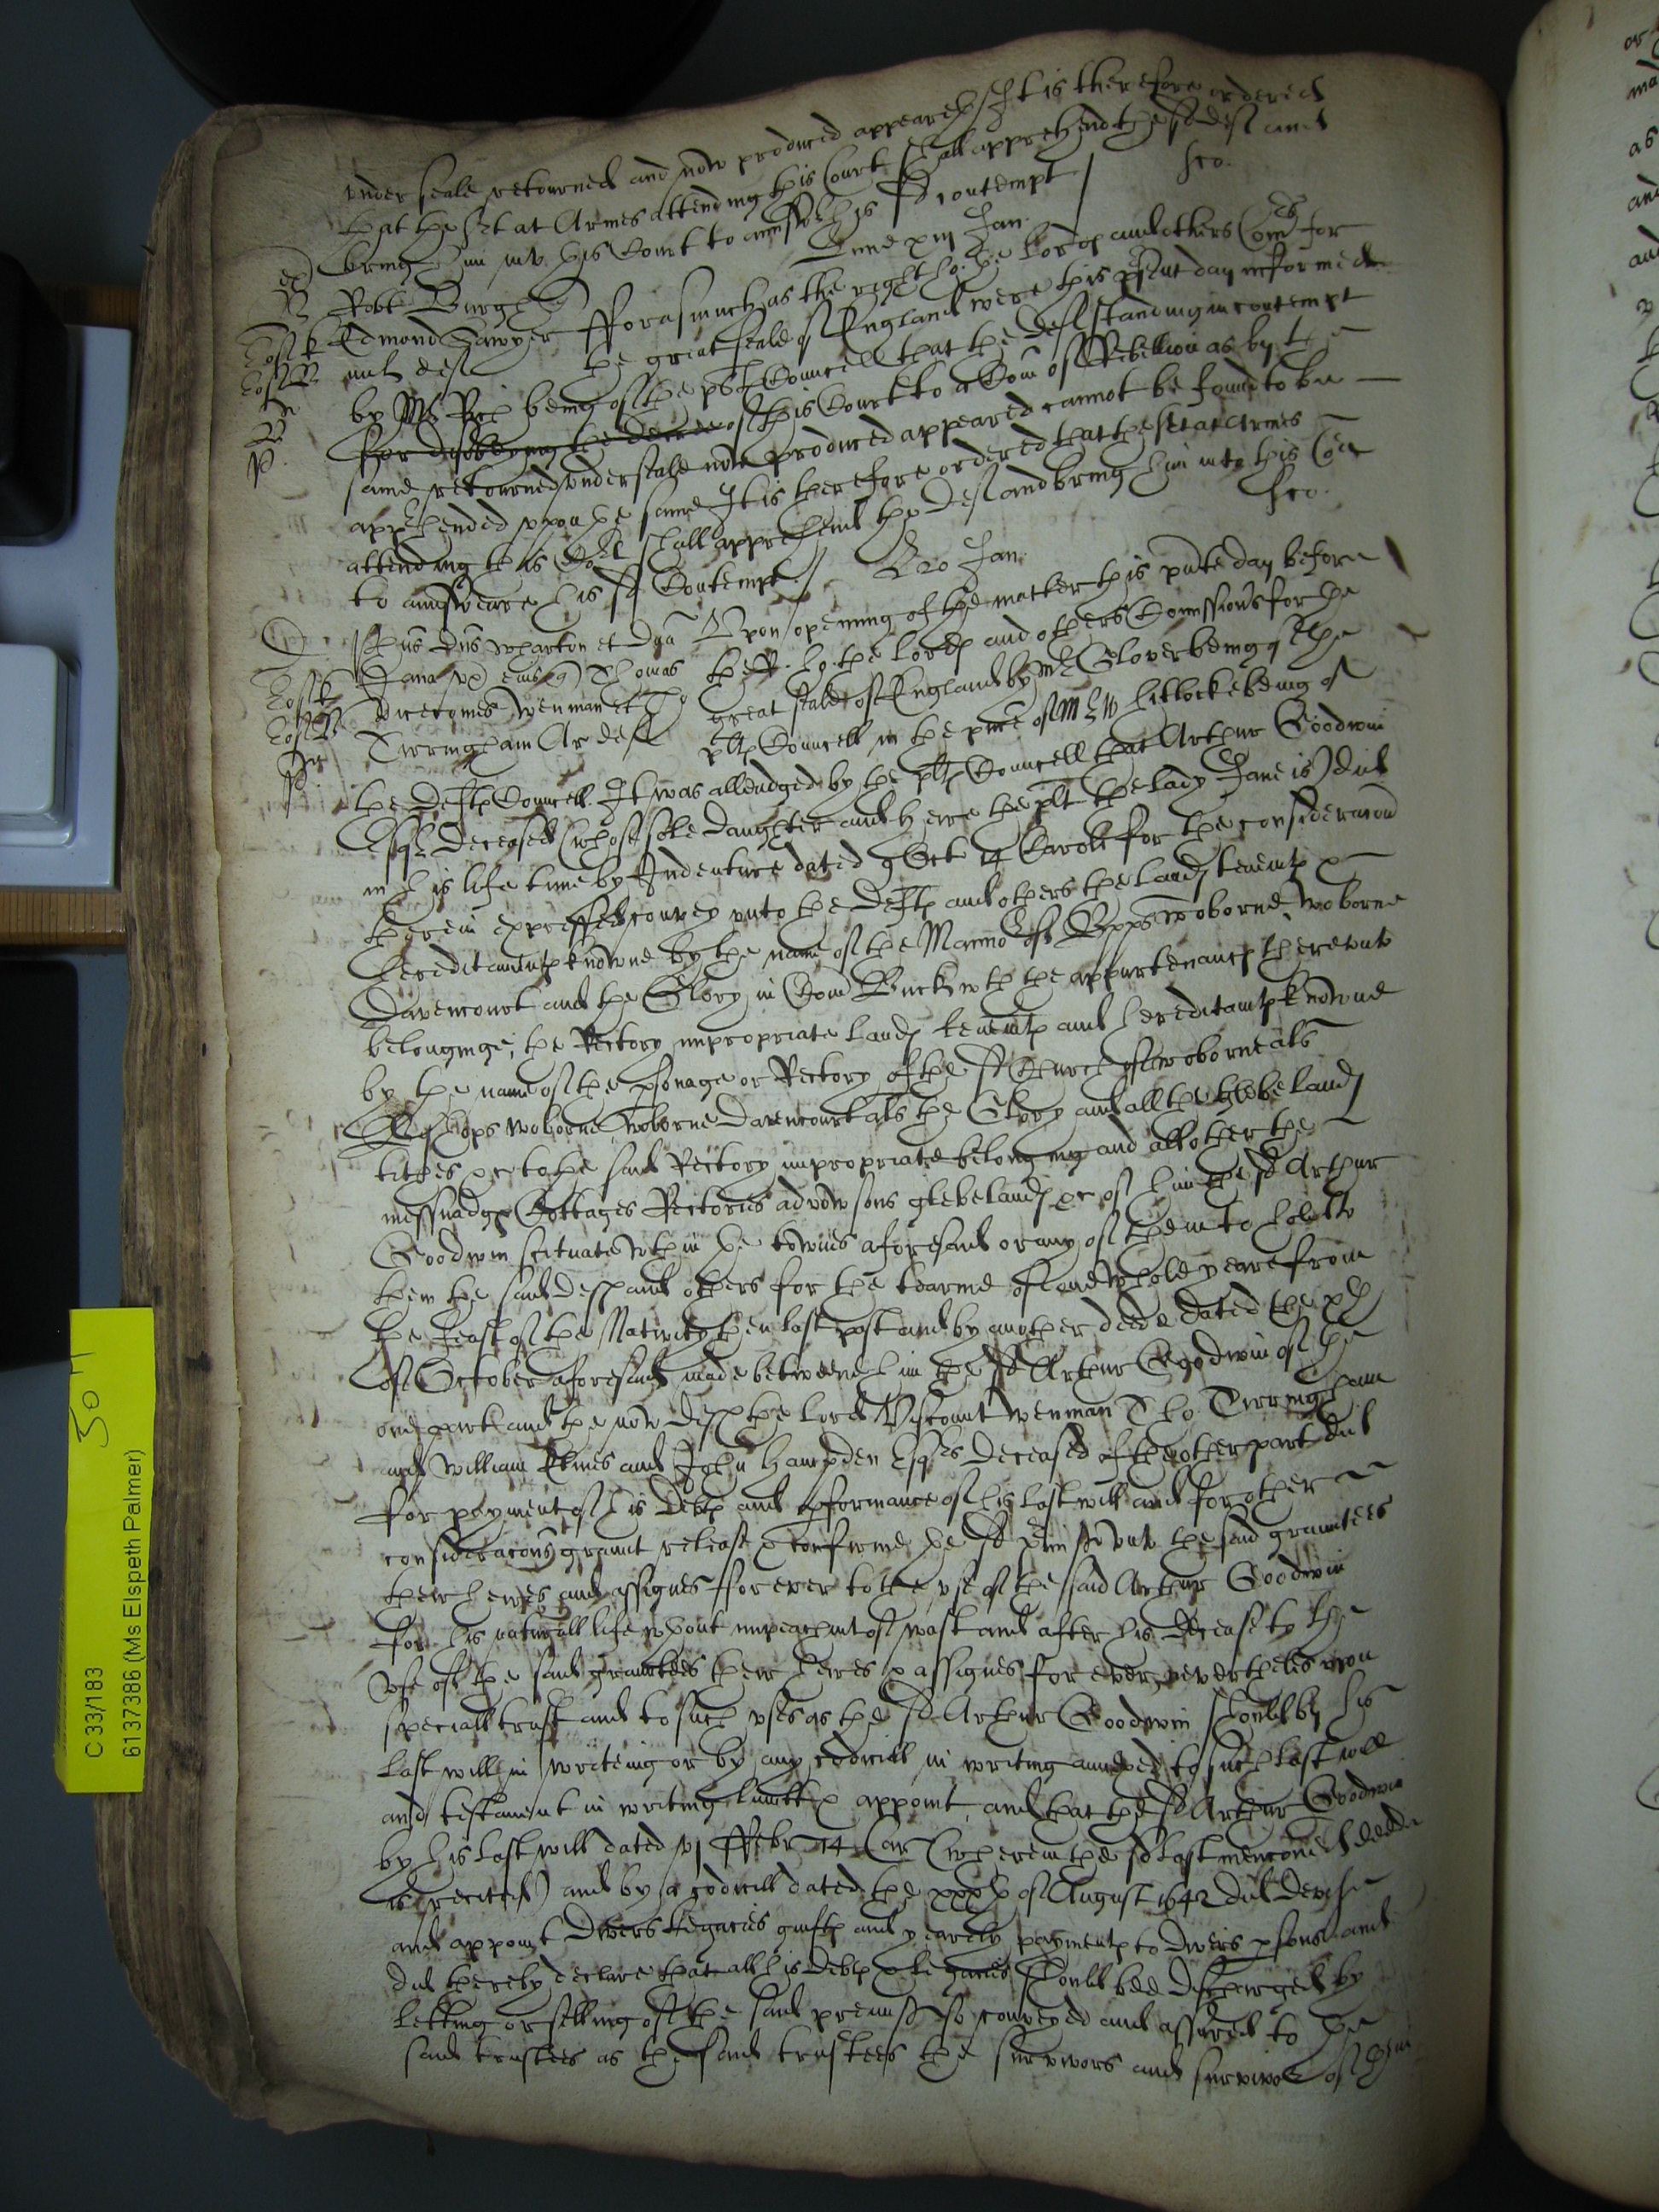 under seale retourned and now produced appeareth It is therefore ordered
that the sjt at Armes attending this Court shall apprehend the sd deft and
bring him into this Court to answere his sd contempt / sco.
Lune xiij Jan.
Robt Burgh q Forasmuch as the right ho: the Lordes and others Com̃rs for
Edmond Sawyer the great seale of England were this psent day informed
deft
by Mr being of the plts Councell that the Deft standing in contempt
for disobeying the decree of this Court to a Com̃ of Rebellion as by the
same retourned under seale now produced appeared cannot be found to be
apprhended upon the same It is therefore ordered that the sjt at Armes
attending this Cort shall apprehend the Deft and bring him into this Cort
to answeare his sd Contempt / sco.
Lune 20 Jan
Phūs Dns Wharton et Dna Upon opening of the matter this pnte day before
Jana ux eius q Thomas the R. ho. the Lordes and others Comissions for the
vicecomes Wenman et Tho great seale of England by Mr Glover being of the
Tirringham Ar deftes plts Councell in the pnce of Mr W hitlocke being of
the Deftes Councell. It was alleadged by the plts Councell that Arthur Goodwin
Esqr Deceased (whose sole Daughter and heire the plt the lady Jane is) did
in his life time by Indenture dated 9 Oct 14 Caroli for the consideracon
therein expressed convey unto the Deftes and others the Landes tenemtes &
hereditamentes knowne by the name of the Mannor of Bpps woborne, Woborne
Davencourt and the Glory in Com̃ Buck wth the appurtenances thereunto
belonginge, the Rectory impropriate Landes tenemtes and hereditamtes knowne
by the name of the psonage or Rectory of the sd Church of Woborne als
Bishops Woborne Woborne Davencourt als the Glory and all the glebe Landes
tithes &c to the said Rectory impropriate belonging and all other the
messuadges Cottages Rectories advowsons glebe landes &c of him the sd Arthur
Goodwin scituate wthin the townes aforesaid or any of them to hold to
them the said Deftes and others for the tearme of one whole yeare from
the feast of the Nativity then last past and by another deede dated the xth
of October aforesaid made betweene him the sd Arthur Goodwin of the
one part and the now Deftes the Lord Viscount Wenman Tho. Tirringham
and William Elmes and John Hampden Esqrs Deceased of the other part did
for payment of his debtes and pformance of his last will and for other
consideracons graunt release & confirme the sd prmisses unto the said grauntees
their heires and assignes for ever to the use of the said Arthur Goodwin
for his naturall life wthout impeachmt of wast and after his decease to the
Use of the said grauntees their heires & assignes for ever nevertheles upon
speciall trust and to such uses as the sd Arthur Goodwin should by his
last will in writeing or by any codicill in writing annexed to such last will
and testament in writing limitt & appoint, and that the sd Arthur Goodwin
by his last will dated vj Febr 14 Car (wherein the sd last mencōned deede
is recited) and by a codicill dated the xxxth of August 1642 did devise
and appoint Divers Legacies guiftes and yearely paymentes to divers psons and
did thereby declare that all his debtes & legacies should bee discharged by
letting or selling of the said premisses so conveyed and assured to the
said trustees as the said trustees the survivors and survivor of them
30
C 33/183
6137386 (Ms Elspeth Palmer)